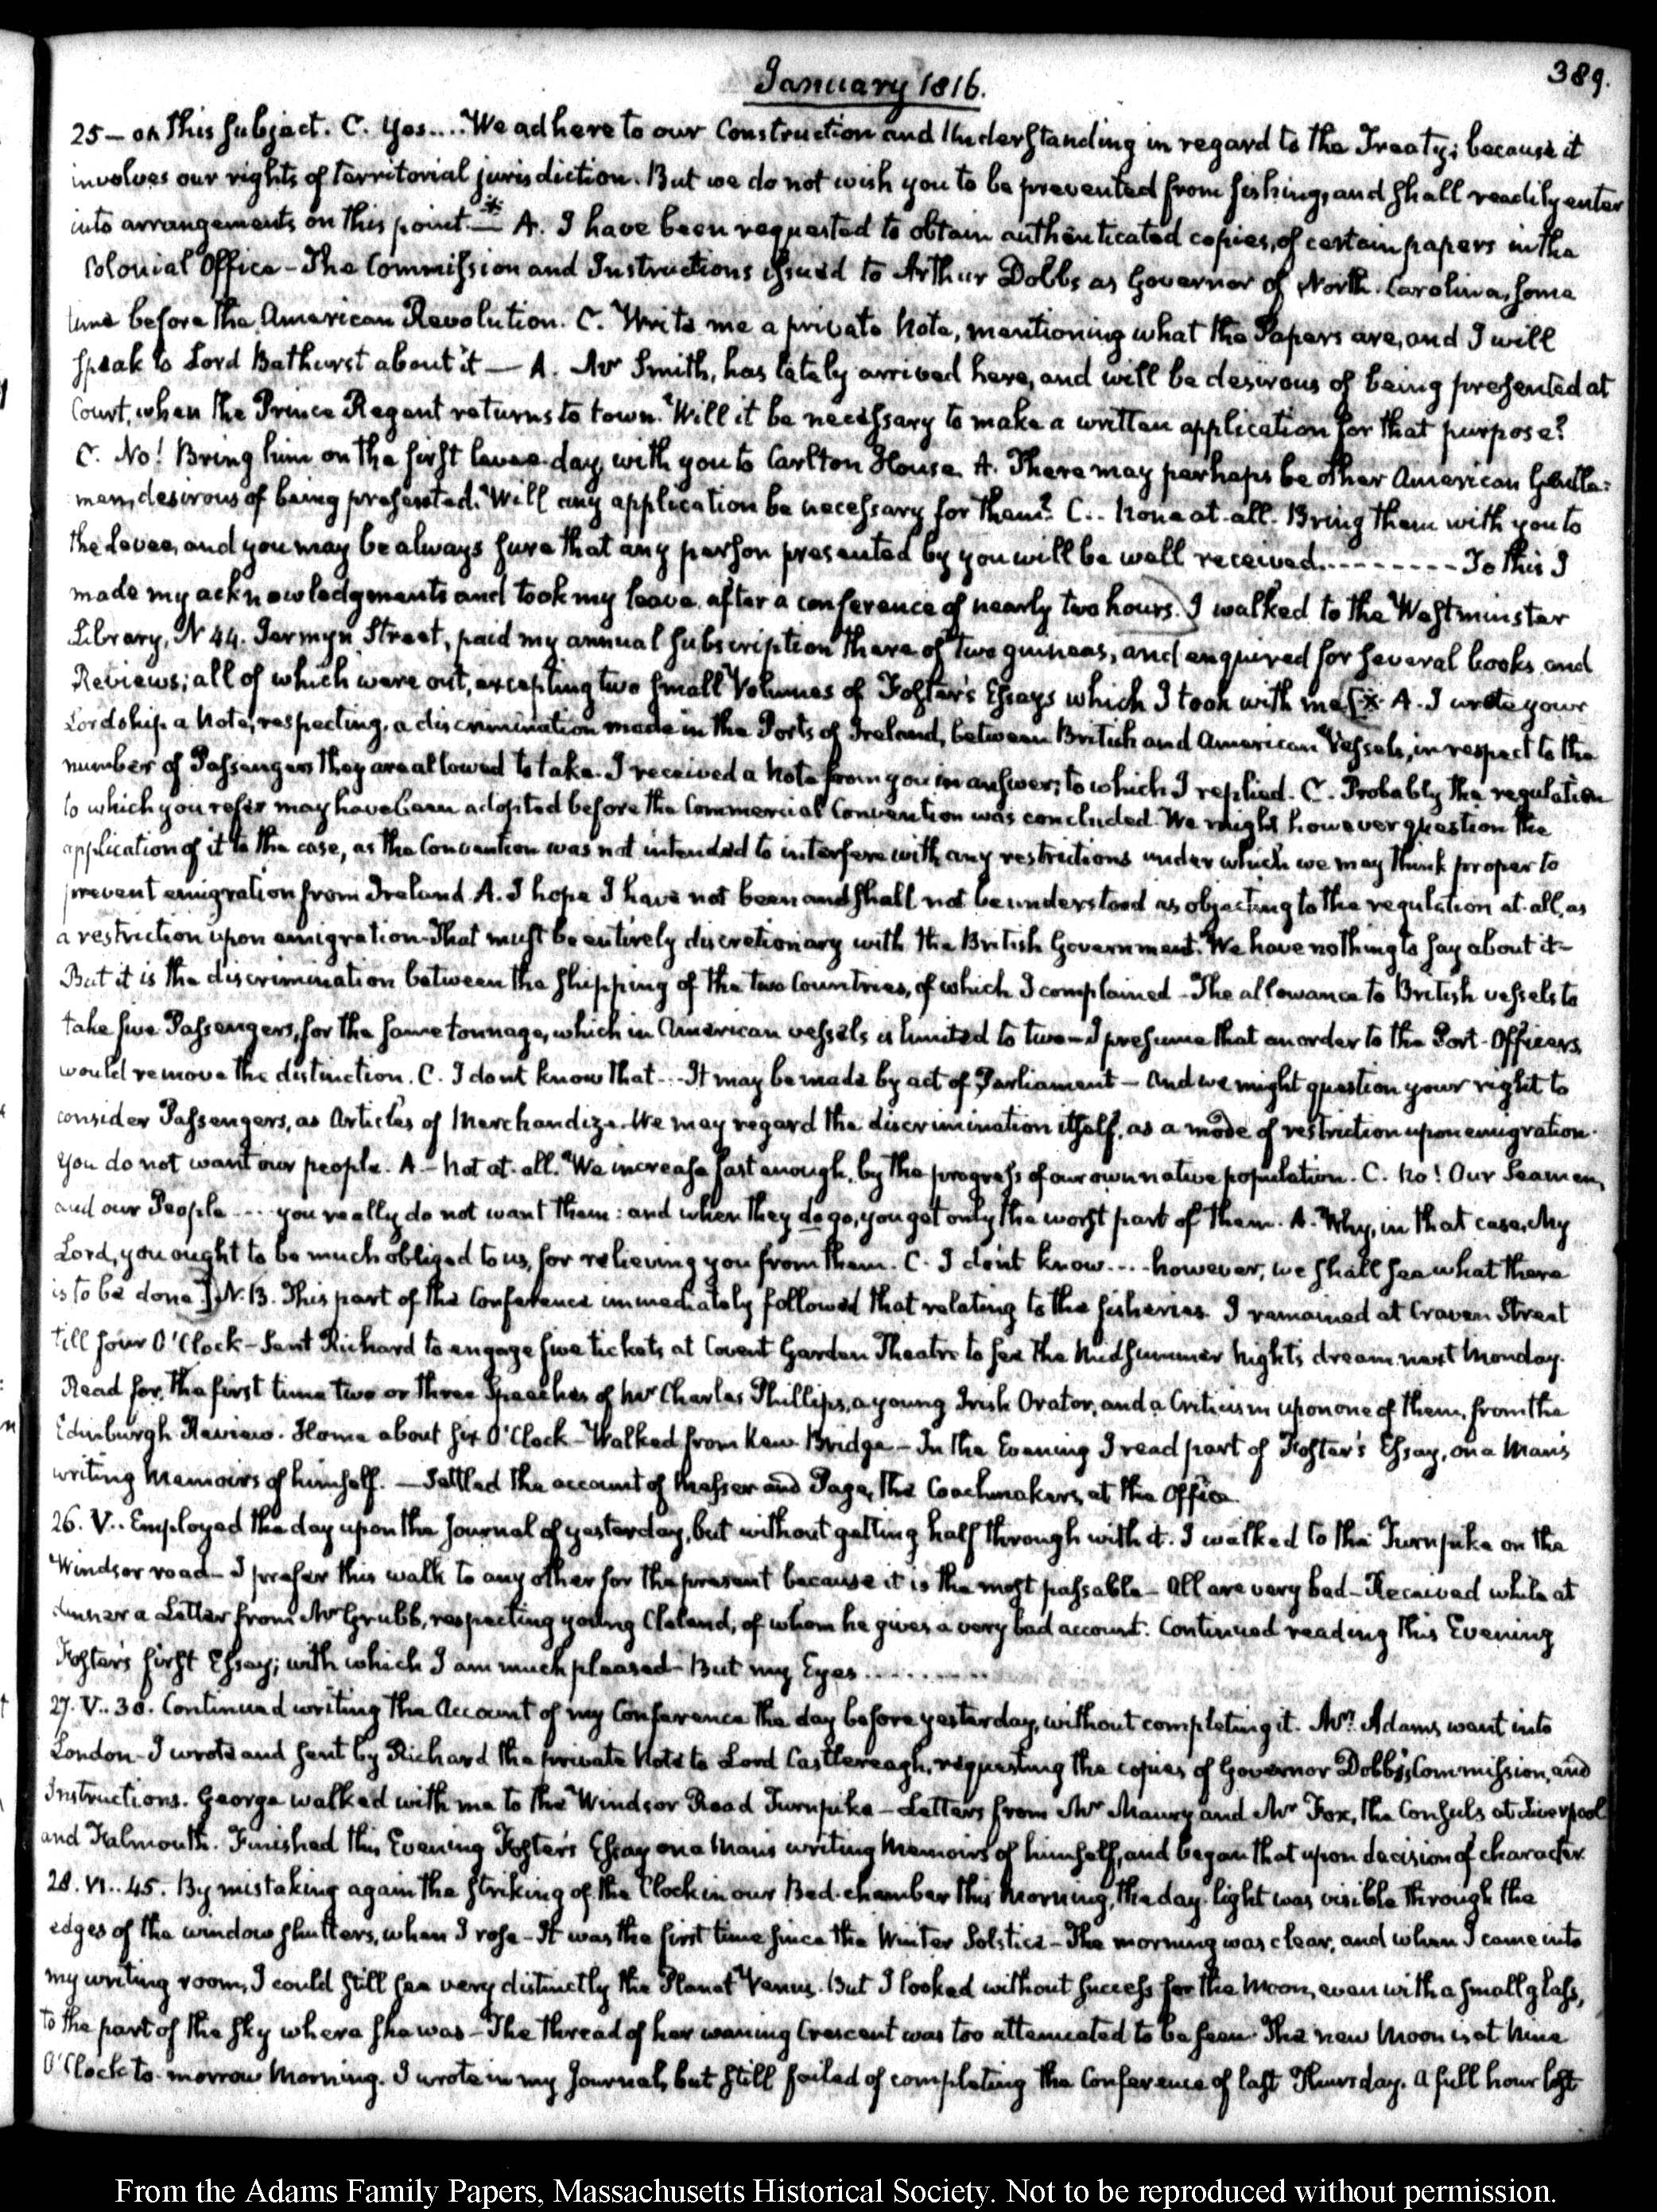 389.
January 1816.
25 – on this subject. C. Yes.... We adhere to our Construction and Understanding in regard to the Treaty; because it
involves our rights of territorial jurisdiction. But we do not wish you to be prevented from fishing, and shall readily enter
into arrangements on this point.* — A. I have been requested to obtain authenticated copies, of certain papers in the
Colonial Office – The Commission and Instructions issued to Arthur Dobbs as Governor of North-Carolina, some
time before the American Revolution. C. Write me a private Note, mentioning what the Papers are, and I will
speak to Lord Bathurst about it — A. Mr Smith, has lately arrived here, and will be desirous of being presented at
Court, when the Prince Regent returns to town. Will it be necessary to make a written application for that purpose?
C. No! Bring him on the first levee-day with you to Carlton House. A. There may perhaps be other American Gentle:
:men, desirous of being presented. Will any application be necessary for them? C.. None at-all. Bring them with you to
the Levee, and you may be always sure that any person presented by you will be well received.--------- To this I
made my acknowledgments and took my leave after a conference of nearly two hours. I walked to the Westminster
Library, N 44. Jermyn Street, paid my annual subscription there of two guineas, and enquired for several books and
Reviews; all of which were out, excepting two small Volumes of Foster's Essays which I took with me [* A. I wrote your
Lordship a Note, respecting, a discrimination made in the Ports of Ireland, between British and American Vessels, in respect to the
number of Passengers they are allowed to take. I received a Note from you in answer; to which I replied. C. Probably the regulation
to which you refer may have been adopted before the Commercial Convention was concluded. We might however question the
application of it to the case, as the Convention was not intended to interfere with any restrictions under which we may think proper to
prevent emigration from Ireland. A. I hope I have not been and shall not be understood as objecting to the regulation at-all, as
a restriction upon emigration. That must be entirely discretionary with the British Government. We have nothing to say about it –
But it is the discrimination between the shipping of the two Countries, of which I complained – The allowance to British vessels to
take five Passengers, for the same tonnage, which in American vessels is limited to two – I presume that an order to the Port-Officers,
would remove the distinction. C. I dont know that... It may be made by act of Parliament – And we might question your right to
consider Passengers, as Articles of Merchandize. We may regard the discrimination itself, as a mode of restriction upon emigration.
You do not want our people. A. – Not at-all. We increase fast enough, by the progress of our own native population. C. No! Our Seamen,
and our People .... you really do not want them: and when they do go, you get only the worst part of them. A. Why, in that case, My
Lord, you ought to be much obliged to us, for relieving you from them. C. I don't know.... however, we shall see what there
is to be done] N.B. This part of the Conference immediately followed that relating to the fisheries. I remained at Craven Street
till four O'Clock – Sent Richard to engage five tickets at Covent Garden Theatre to see the Midsummer Nights dream next Monday.
Read for the first time two or three Speeches of Mr Charles Phillips, a young Irish Orator, and a Criticism upon one of them, from the
Edinburgh Review. Home about six O'Clock – Walked from Kew Bridge – In the Evening I read part of Foster's Essay, on a Man's
writing Memoirs of himself. — Settled the account of Messer and Page, the Coachmakers, at the Office.
26. V.. Employed the day upon the Journal of yesterday, but without getting half through with it. I walked to the Turnpike on the
Windsor road – I prefer this walk to any other for the present because it is the most passable – All are very bad – Received while at
dinner a Letter from Mr Grubb, respecting young Cleland, of whom he gives a very bad account. Continued reading this Evening
Foster's first Essay; with which I am much pleased – But my Eyes ..........
27. V..30. Continued writing the Account of my Conference the day before yesterday, without completing it. Mrs Adams, went into
London – I wrote and sent by Richard the private Note to Lord Castlereagh, requesting the copies of Governor Dobbs's Commission, and
Instructions. George walked with me to the Windsor Road Turnpike – Letters from Mr Maury and Mr Fox, the Consuls at Liverpool
and Falmouth. Finished this Evening Foster's Essay on a Mans writing Memoirs of himself, and began that upon decision of character.
28. VI..45. By mistaking again the striking of the Clock in our Bed-chamber this Morning, the day-light was visible through the
edges of the window shutters, when I rose – It was the first time since the Winter Solstice – The morning was clear, and when I came into
my writing room, I could still see very distinctly the Planet Venus. But I looked without success for the Moon, even with a small glass,
to the part of the sky where she was – The thread of her waning Crescent was too attenuated to be seen. The new Moon is at Nine
O'Clock to-morrow Morning. I wrote in my Journal, but still failed of completing the Conference of last Thursday. A full hour lost
From the Adams Family Papers, Massachusetts Historical Society. Not to be reproduced without permission.